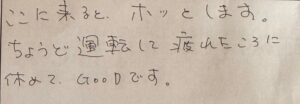 ここに来ると、ホッとします。
ちょうど運転して疲れたころに
休めて、GOODです。